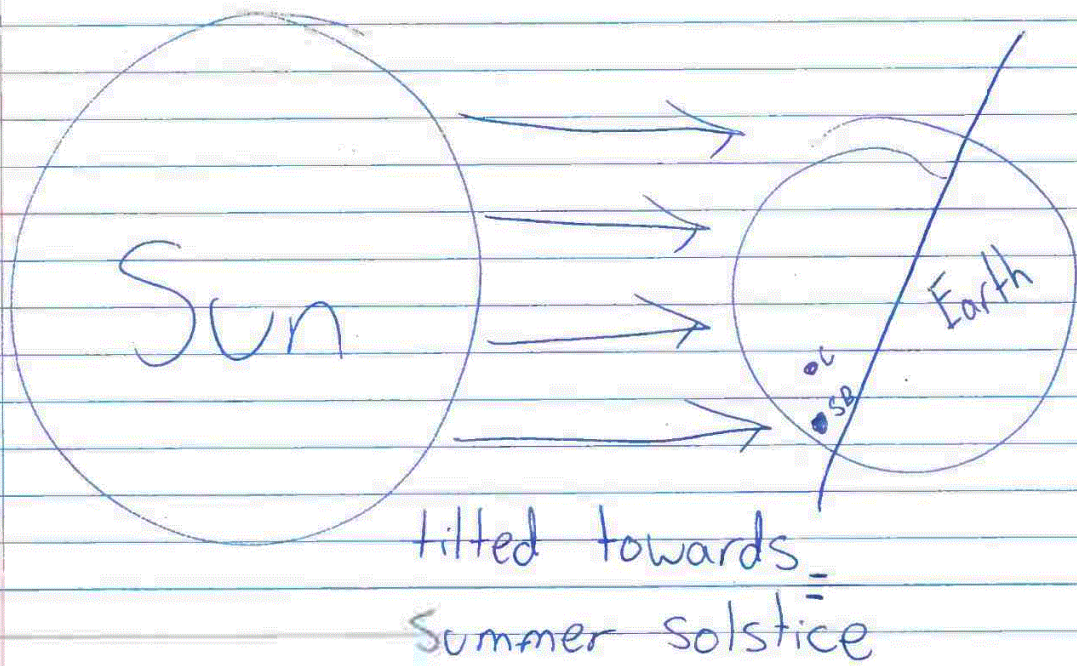 Sun
Earth
C
SB
tilted towards =
Summer solstice